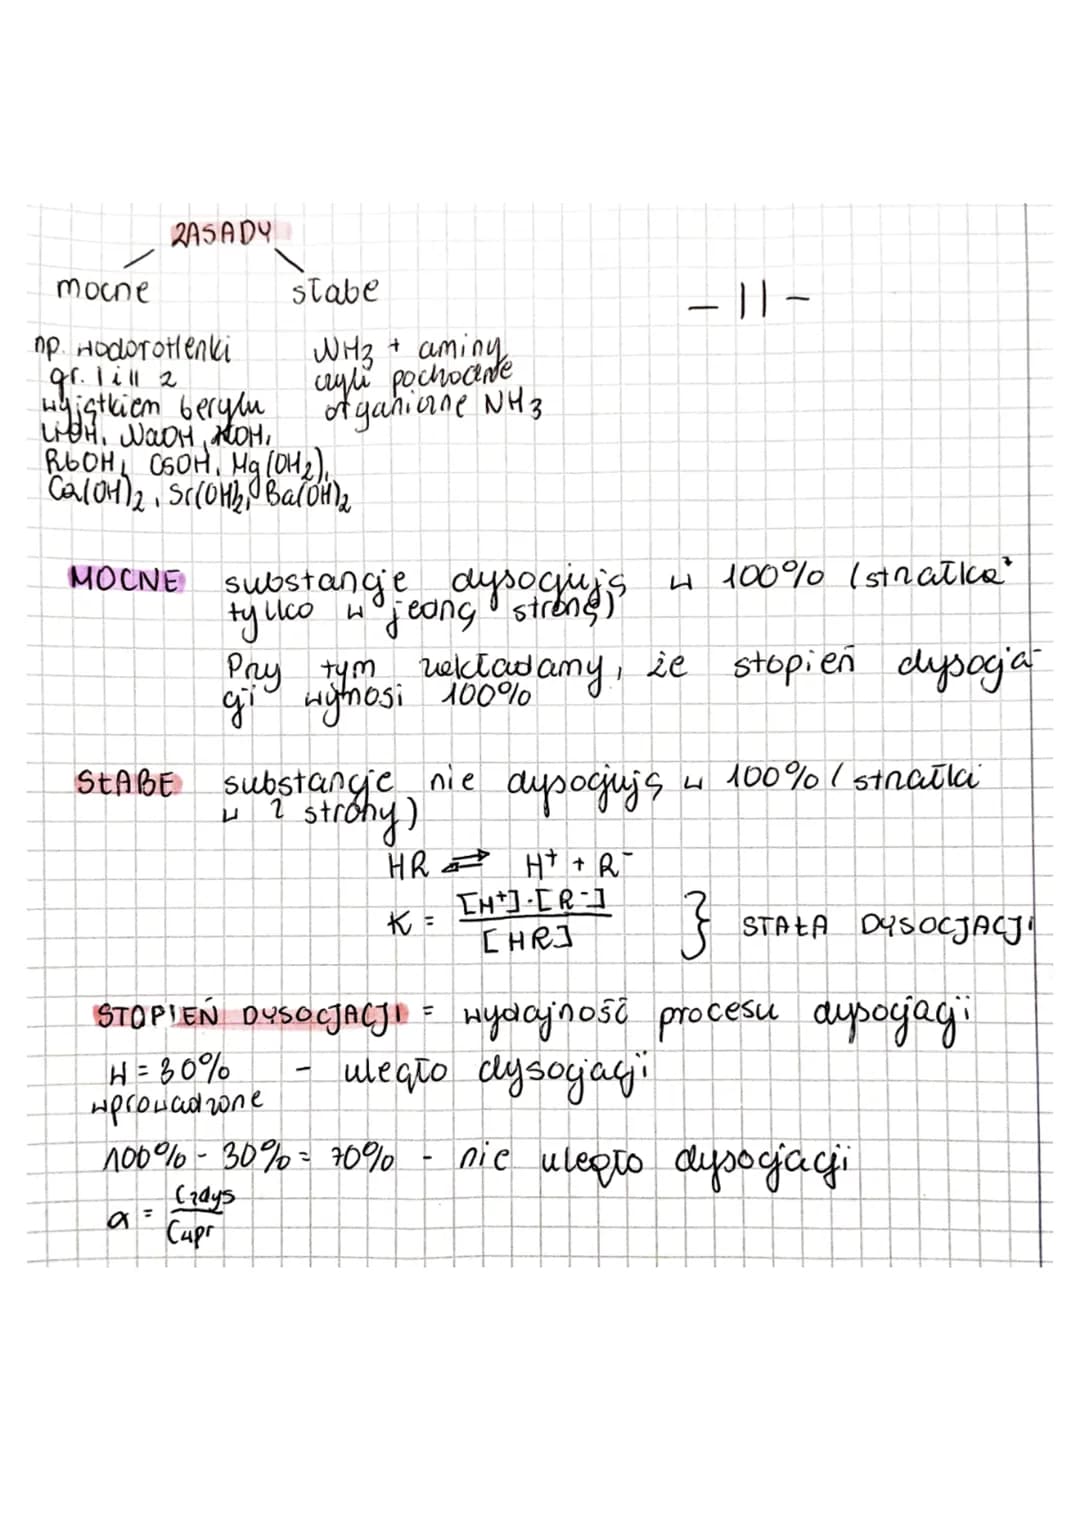 ZASADY
mocne słabe
- || -
np. wodorotlenki NH3 + aminy
gr. 1 i 2 czyli pochodne
wyjątkiem berylu organiczne NH3
LiOH, NaOH, KOH,
RbOH, CsOH, Mg(OH2),
Ca(OH)2, Sr(OH)2, Ba(OH)2
MOCNE substancje dysocjują w 100% (strzałka
tylko w jedną stronę)
Przy tym zakładamy, że stopień dysocja-
cji wynosi 100%
SŁABE substancje nie dysocjują w 100% (strzałki
w 2 strony)
HR ⇌ H⁺ + R⁻
K = [H⁺]·[R⁻] / [HR] } STAŁA DYSOCJACJI
STOPIEŃ DYSOCJACJI = wydajność procesu dysocjacji
W = 30% - uległo dysocjacji
wprowadzone
100% - 30% = 70% - nie uległo dysocjacji
α = Czdys / Cwpr